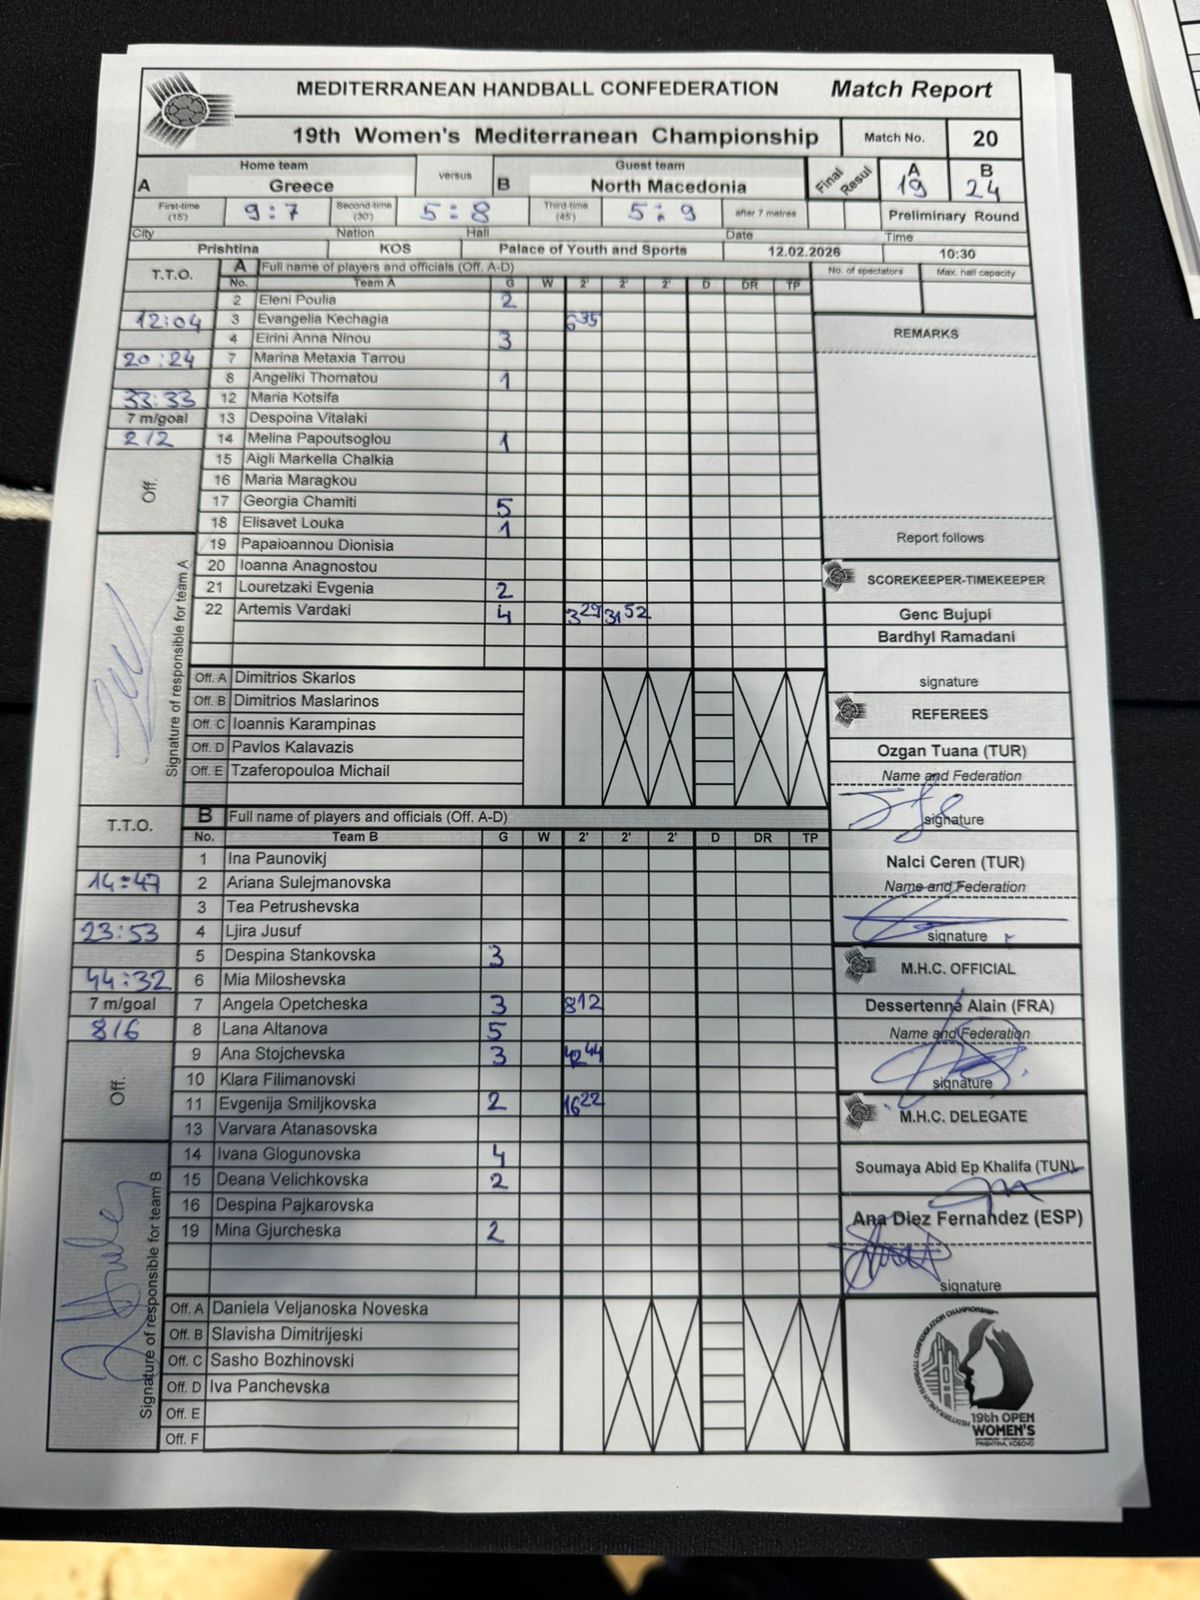 MEDITERRANEAN HANDBALL CONFEDERATION Match Report
19th Women's Mediterranean Championship Match No. 20
Home team versus Guest team Final Resul A B
A Greece B North Macedonia 19 24
First-time (15') 9:7 Second-time (30') 5:8 Third-time (45') 5:9 after 7 metres Preliminary Round
City Nation Hall Date Time
Prishtina KOS Palace of Youth and Sports 12.02.2026 10:30
T.T.O. A Full name of players and officials (Off. A-D) No. of spectators Max. hall capacity
No. Team A G W 2' 2' 2' D DR TP
2 Eleni Poulia 2
12:04 3 Evangelia Kechagia 6 35
4 Eirini Anna Ninou 3 REMARKS
20:24 7 Marina Metaxia Tarrou
8 Angeliki Thomatou 1
33:33 12 Maria Kotsifa
7 m/goal 13 Despoina Vitalaki
2/2 14 Melina Papoutsoglou 1
15 Aigli Markella Chalkia
Off. 16 Maria Maragkou
17 Georgia Chamiti 5
18 Elisavet Louka 1
19 Papaioannou Dionisia Report follows
20 Ioanna Anagnostou
21 Louretzaki Evgenia 2 SCOREKEEPER-TIMEKEEPER
22 Artemis Vardaki 4 3 29 31 52 Genc Bujupi
Bardhyl Ramadani
Signature of responsible for team A
Off. A Dimitrios Skarlos signature
Off. B Dimitrios Maslarinos REFEREES
Off. C Ioannis Karampinas
Off. D Pavlos Kalavazis Ozgan Tuana (TUR)
Off. E Tzaferopouloa Michail Name and Federation
signature
T.T.O. B Full name of players and officials (Off. A-D)
No. Team B G W 2' 2' 2' D DR TP
1 Ina Paunovikj Nalci Ceren (TUR)
14:47 2 Ariana Sulejmanovska Name and Federation
3 Tea Petrushevska
23:53 4 Ljira Jusuf signature
5 Despina Stankovska 3
44:32 6 Mia Miloshevska M.H.C. OFFICIAL
7 m/goal 7 Angela Opetcheska 3 8 12 Dessertenne Alain (FRA)
8/6 8 Lana Altanova 5 Name and Federation
9 Ana Stojchevska 3 42 44
Off. 10 Klara Filimanovski signature
11 Evgenija Smiljkovska 2 16 22 M.H.C. DELEGATE
13 Varvara Atanasovska
14 Ivana Glogunovska 4 Soumaya Abid Ep Khalifa (TUN)
15 Deana Velichkovska 2
16 Despina Pajkarovska Ana Diez Fernandez (ESP)
19 Mina Gjurcheska 2
signature
Signature of responsible for team B
Off. A Daniela Veljanoska Noveska
Off. B Slavisha Dimitrijeski
Off. C Sasho Bozhinovski
Off. D Iva Panchevska
Off. E
Off. F
19th OPEN
WOMEN'S
PRISHTINA, KOSOVO